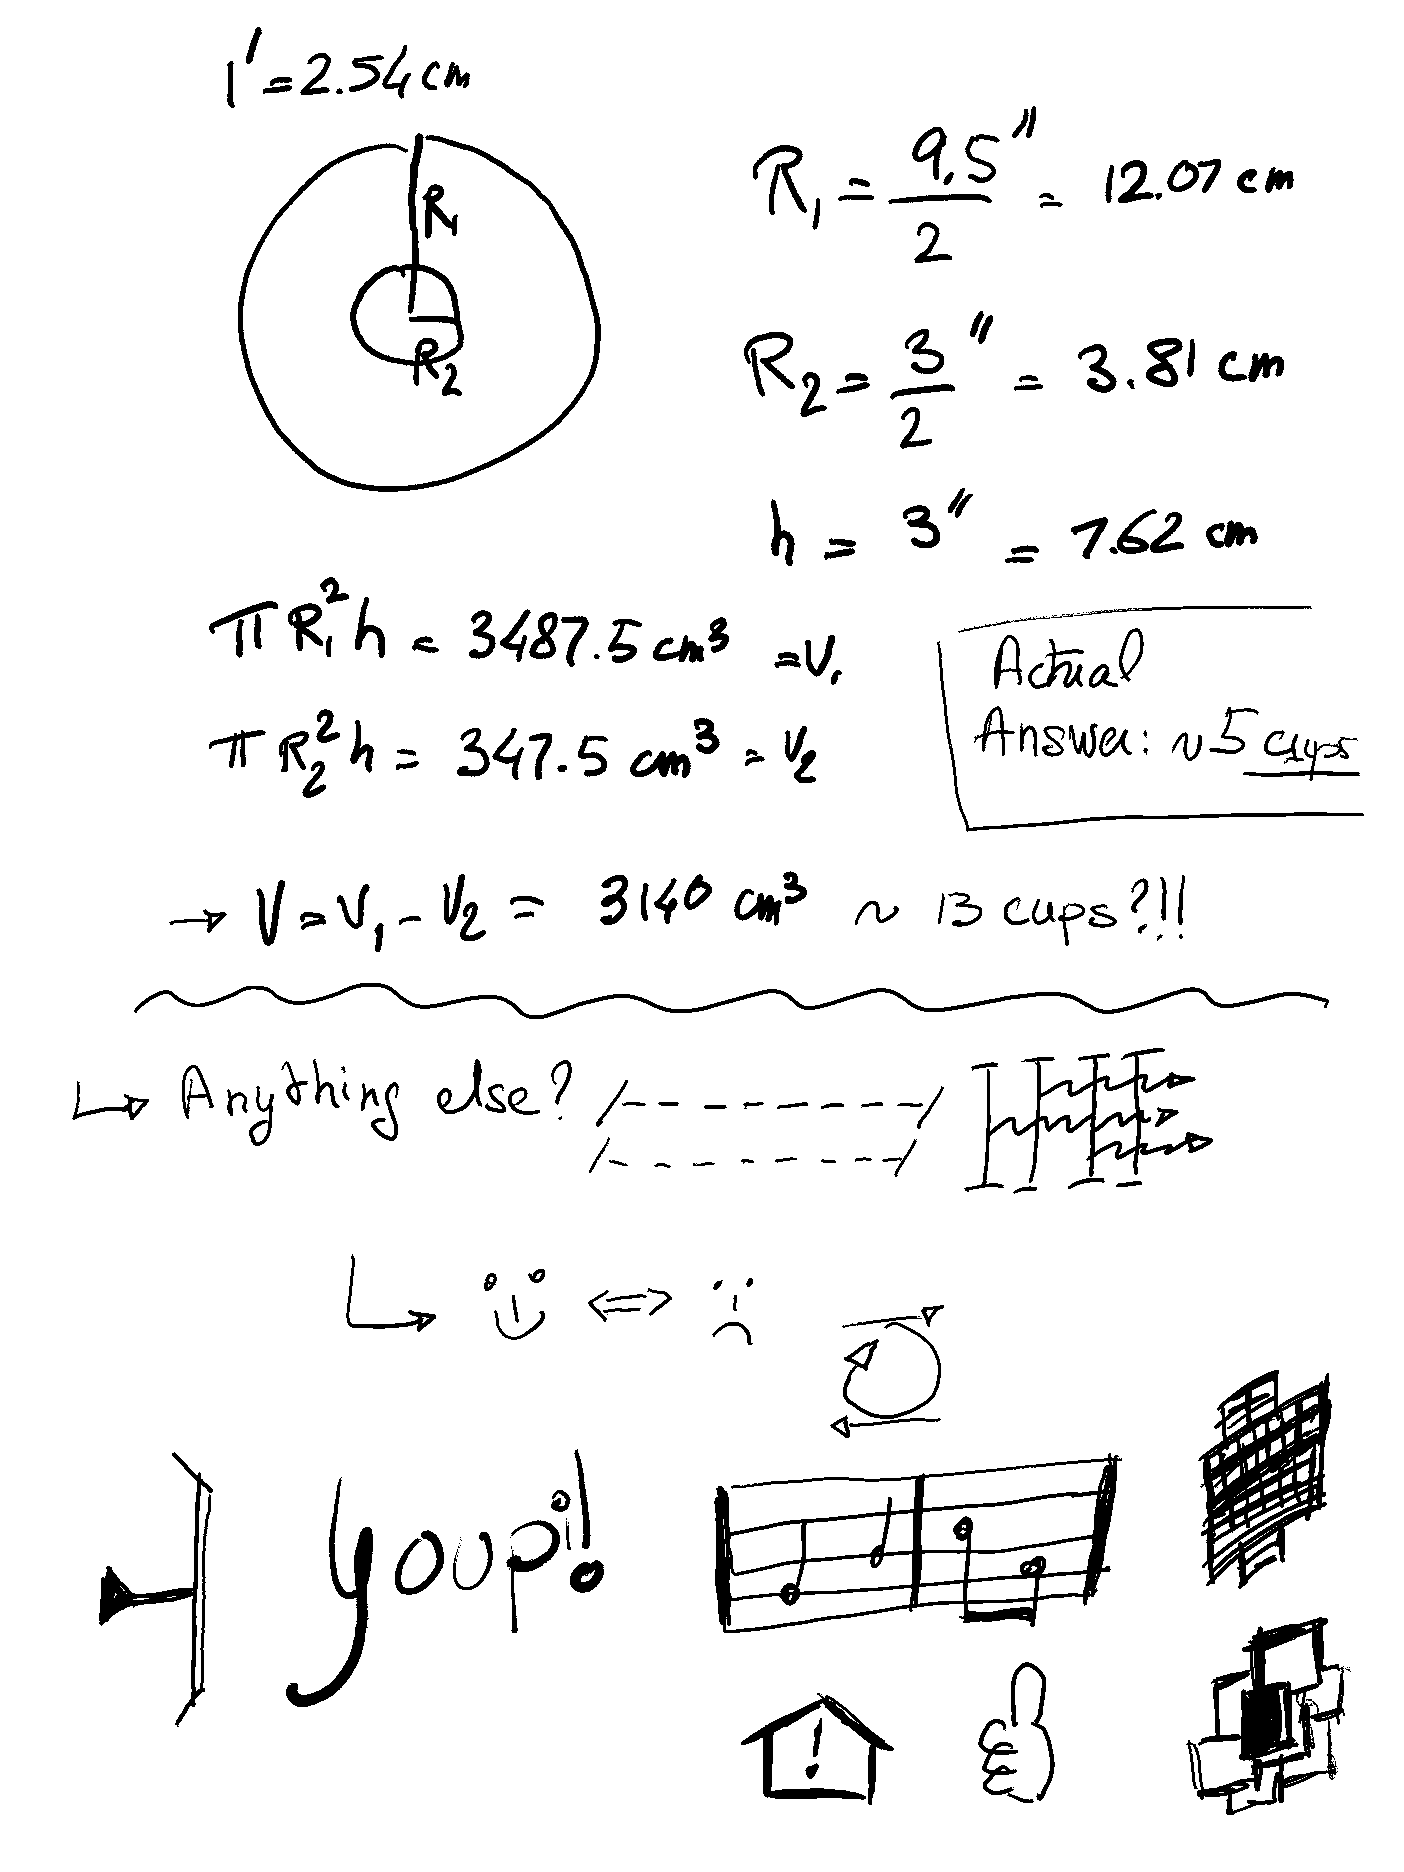 1' = 2.54 cm
R₁
R₂
R₁ = 9.5"/2 = 12.07 cm
R₂ = 3"/2 = 3.81 cm
h = 3" = 7.62 cm
π R₁² h = 3487.5 cm³ = V₁
π R₂² h = 347.5 cm³ = V₂
Actual
Answer: ~5 cups
→ V = V₁ - V₂ = 3140 cm³ ~ 13 cups?!!
↳ Anything else?
Youpi!
!